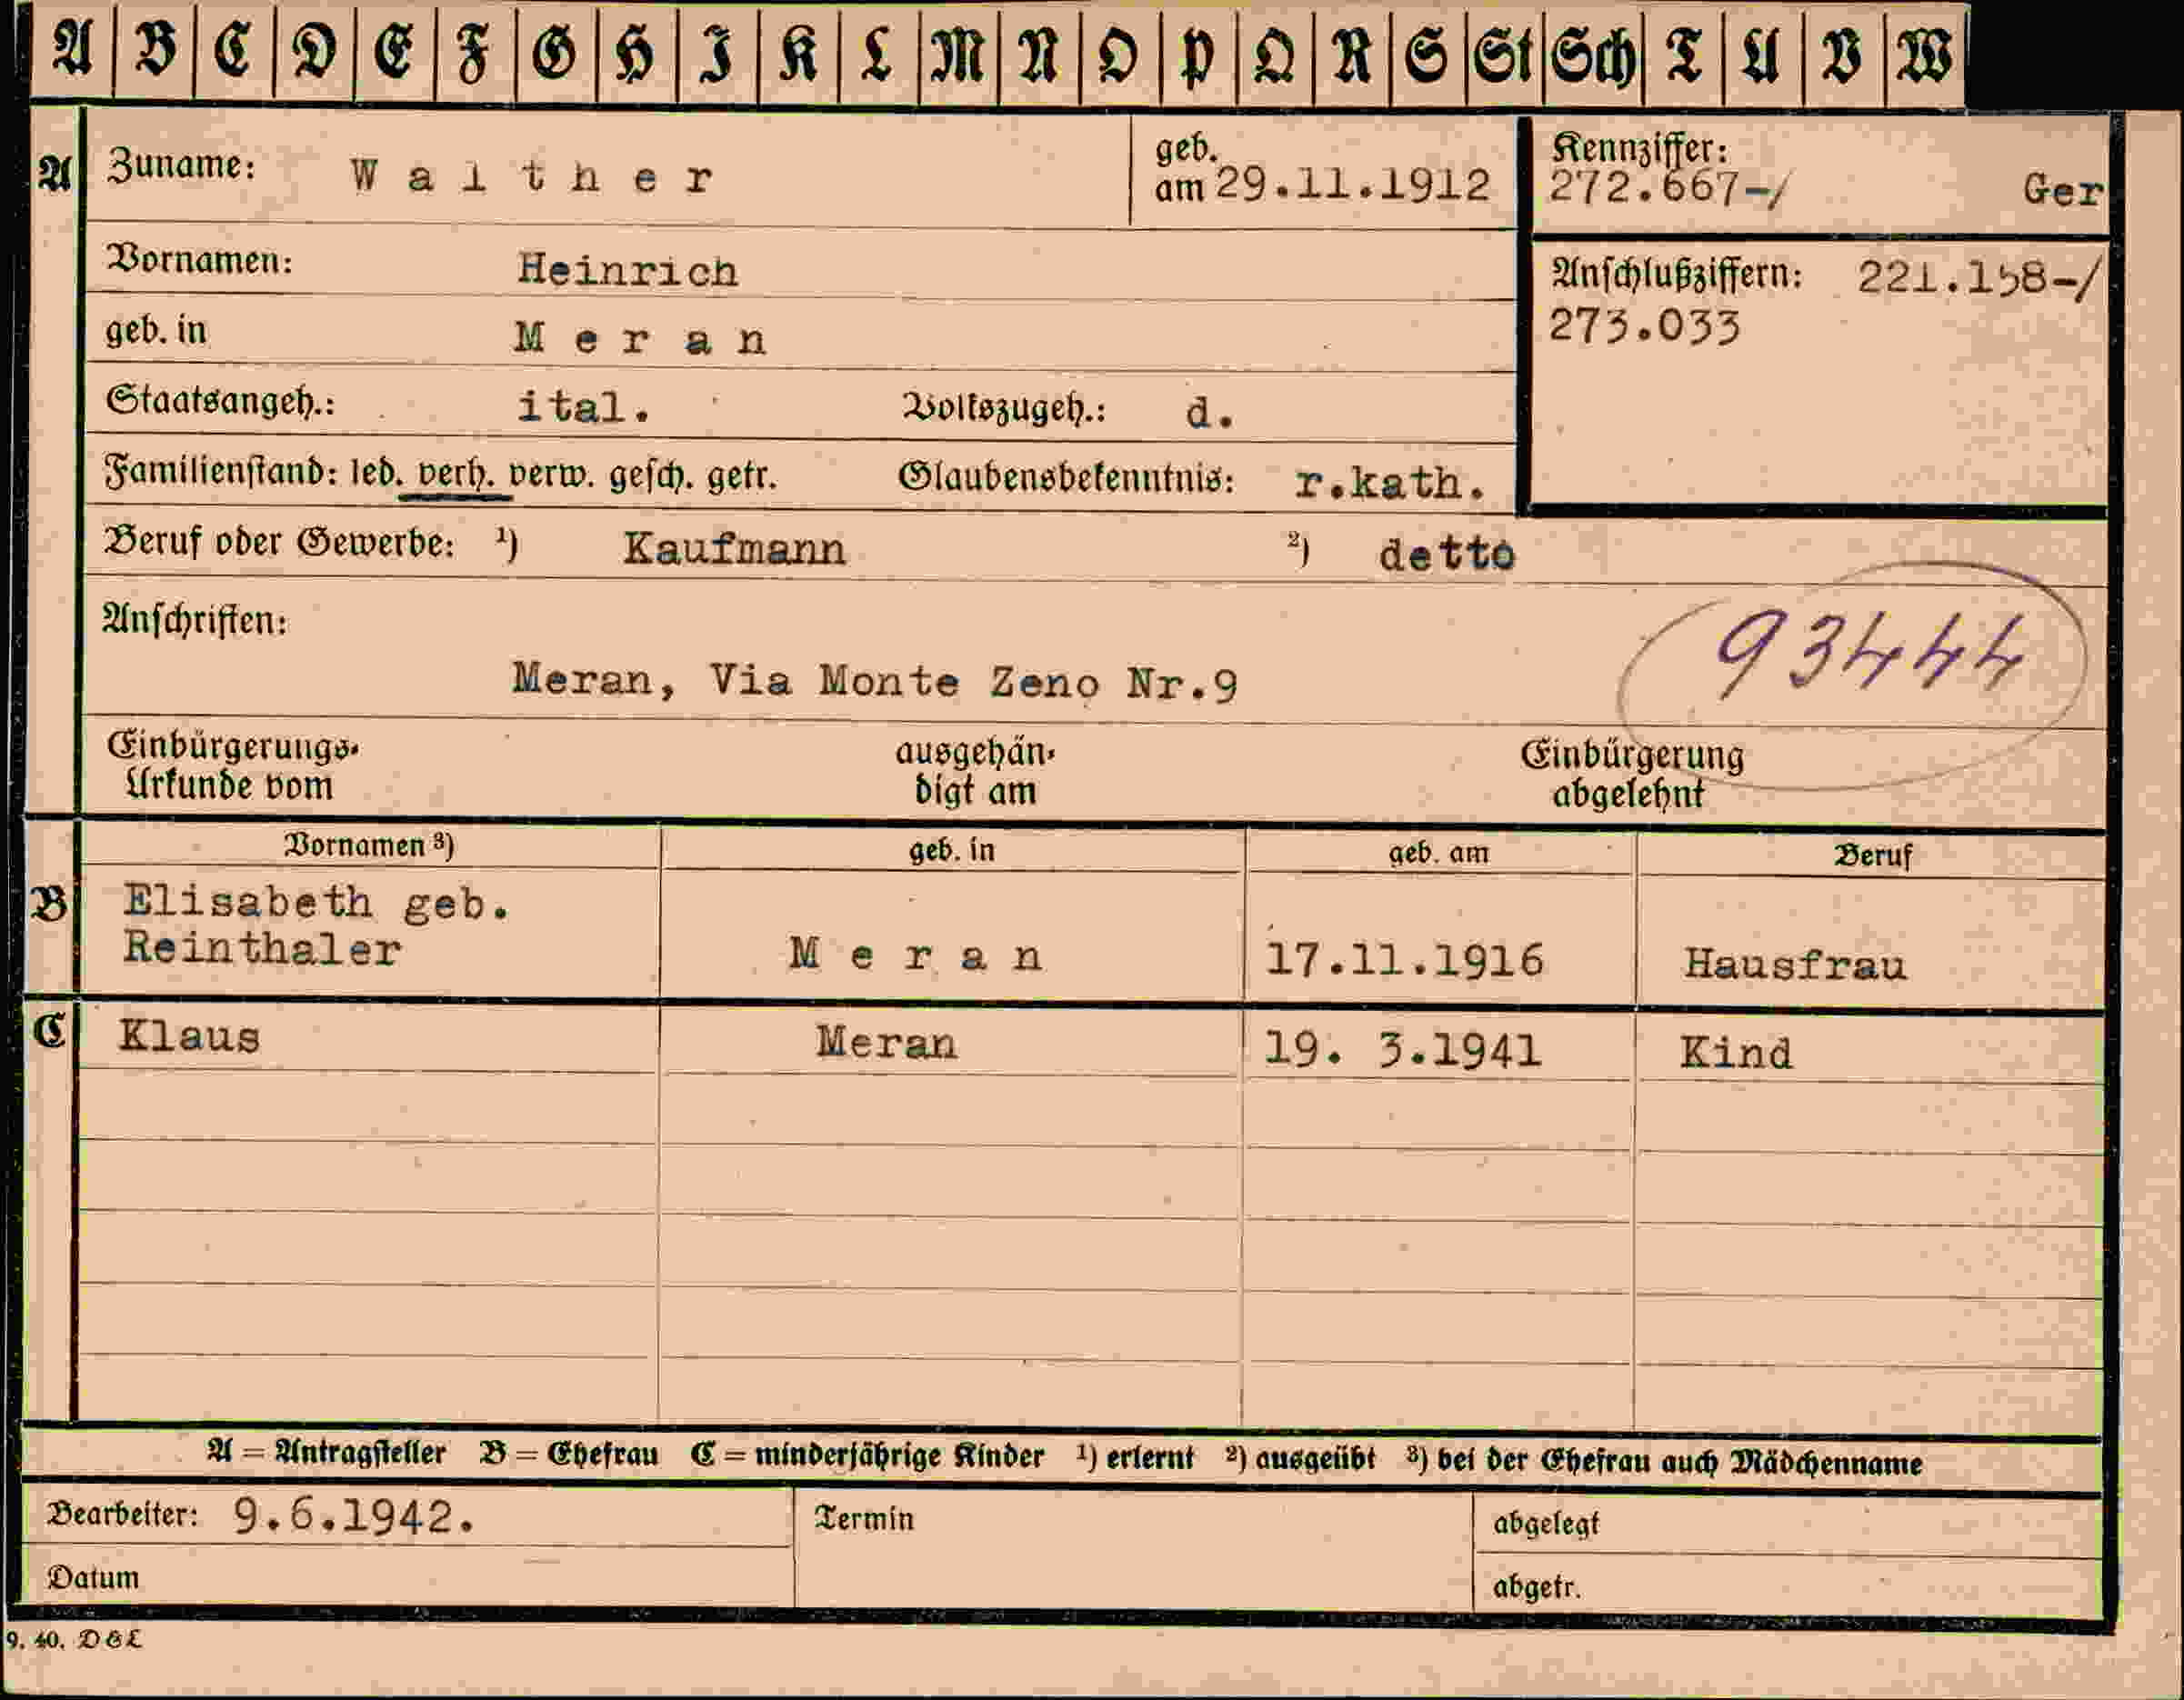 A B C D E F G H I K L M N O P Q R S St Sch T U V W
A Zuname: Walther geb. am 29.11.1912
Kennziffer: 272.667-/ Ger
Vornamen: Heinrich
Anschlußziffern: 221.158-/
273.033
geb. in Meran
Staatsangeh.: ital. Volkszugeh.: d.
Familienstand: led. verh. verw. gesch. getr. Glaubensbekenntnis: r.kath.
Beruf oder Gewerbe: 1) Kaufmann 2) detto
Anschriften:
93444
Meran, Via Monte Zeno Nr.9
Einbürgerungs-
Urkunde vom
ausgehän-
digt am
Einbürgerung
abgelehnt
Vornamen 3) geb. in geb. am Beruf
B Elisabeth geb.
Reinthaler Meran 17.11.1916 Hausfrau
C Klaus Meran 19. 3.1941 Kind
A = Antragsteller B = Ehefrau C = minderjährige Kinder 1) erlernt 2) ausgeübt 3) bei der Ehefrau auch Mädchenname
Bearbeiter: 9.6.1942. Termin abgelegt
Datum abgetr.
9. 40. D&L